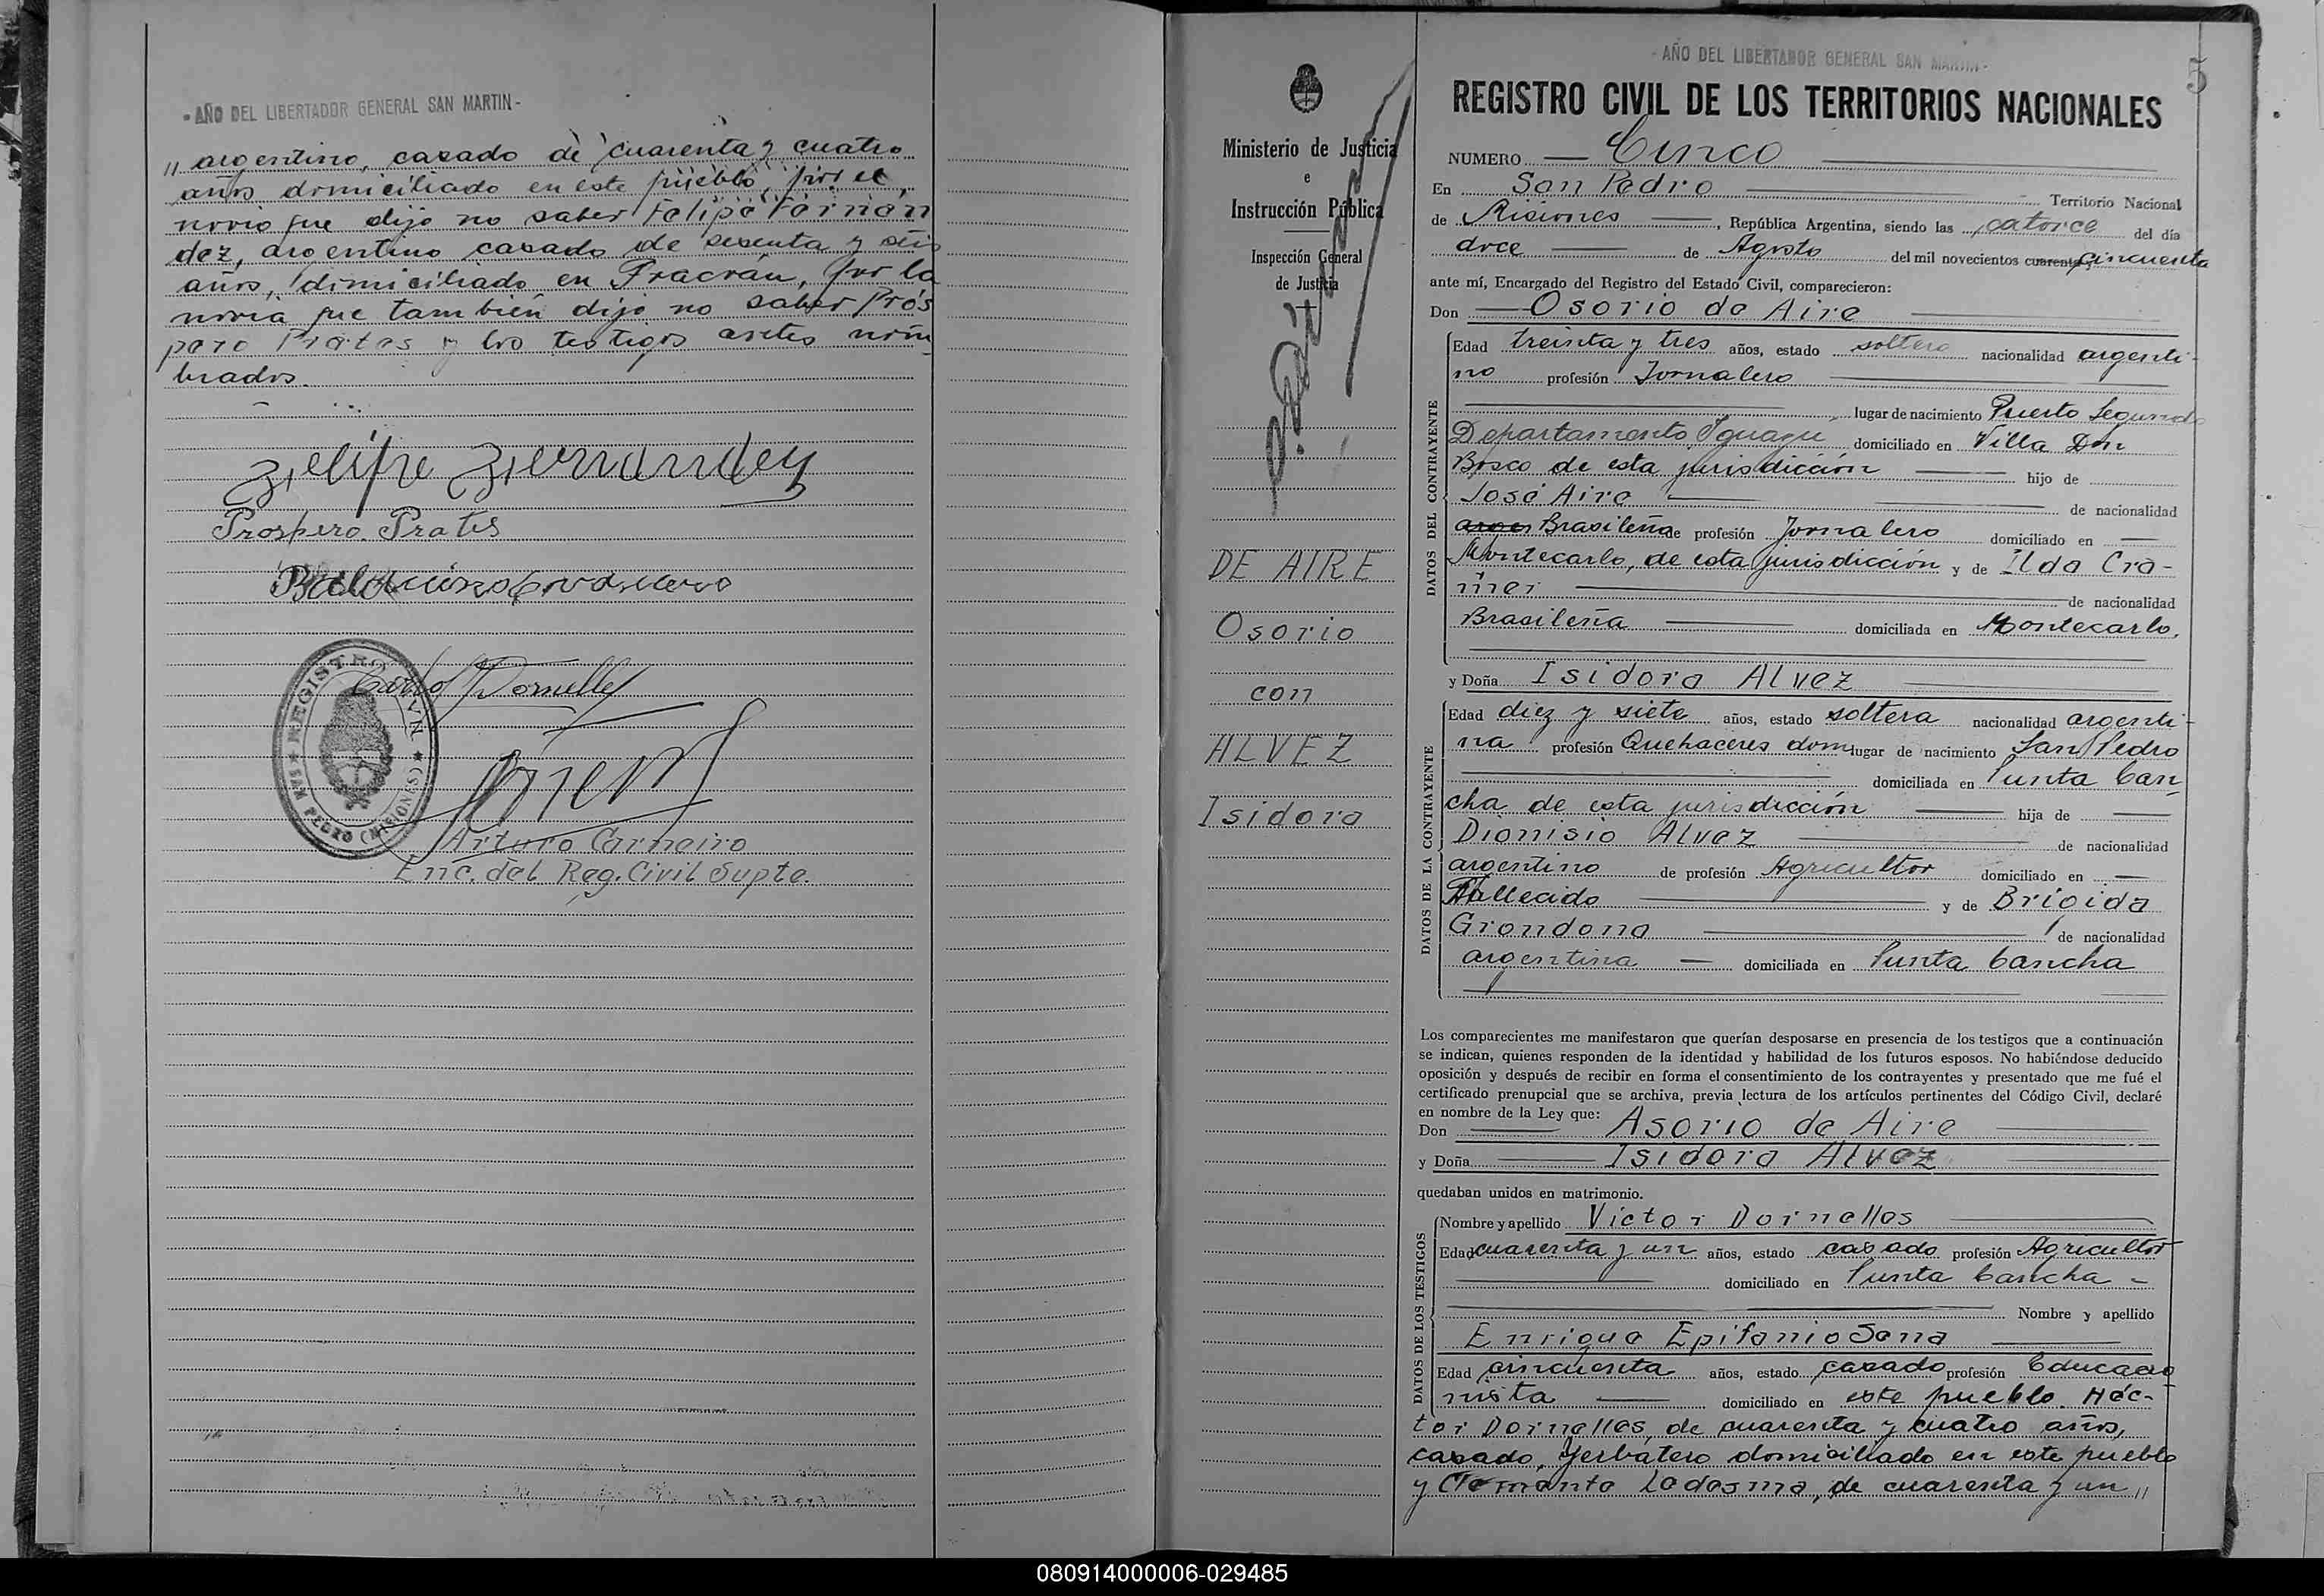 - AÑO DEL LIBERTADOR GENERAL SAN MARTIN -
" argentino, casado de cuarenta y cuatro
años domiciliado en este pueblo, por el
novio que dijo no saber Felipe Fernán
dez, argentino casado de sesenta y seis
años, domiciliado en Fracrán, por la
novia que también dijo no saber Prós
pero Prates y los testigos antes nom
brados.
Felipe Fernandez
Prospero Prates
REGISTRO
SAN PEDRO (MISIONES)
Arturo Carneiro
Enc. del Reg. Civil Supte.
Ministerio de Justicia
e
Instrucción Pública
Inspección General
de Justicia
DE AIRE
Osorio
con
ALVEZ
Isidora
- AÑO DEL LIBERTADOR GENERAL SAN MARTIN -
5
REGISTRO CIVIL DE LOS TERRITORIOS NACIONALES
NUMERO Cinco
En San Pedro Territorio Nacional
de Misiones, República Argentina, siendo las catorce del día
doce de Agosto del mil novecientos cuarenta y cincuenta
ante mí, Encargado del Registro del Estado Civil, comparecieron:
Don Osorio de Aire
DATOS DEL CONTRAYENTE
Edad treinta y tres años, estado soltero nacionalidad argenti-
no profesión Jornalero
lugar de nacimiento Puerto Segundo
Departamento Iguazú domiciliado en Villa Don
Bosco de esta jurisdicción hijo de
José Aire de nacionalidad
Brasileña de profesión Jornalero domiciliado en
Montecarlo, de esta jurisdicción y de Ilda Cra-
mer de nacionalidad
Brasileña domiciliada en Montecarlo.
y Doña Isidora Alvez
DATOS DE LA CONTRAYENTE
Edad diez y siete años, estado soltera nacionalidad argenti-
na profesión Quehaceres dom. lugar de nacimiento San Pedro
domiciliada en Punta Can
cha de esta jurisdicción hija de
Dionisio Alvez de nacionalidad
argentino de profesión Agricultor domiciliado en
Fallecido y de Brígida
Grondona de nacionalidad
argentina domiciliada en Punta Cancha
Los comparecientes me manifestaron que querían desposarse en presencia de los testigos que a continuación
se indican, quienes responden de la identidad y habilidad de los futuros esposos. No habiéndose deducido
oposición y después de recibir en forma el consentimiento de los contrayentes y presentado que me fué el
certificado prenupcial que se archiva, previa lectura de los artículos pertinentes del Código Civil, declaré
en nombre de la Ley que:
Don Asorio de Aire
y Doña Isidora Alvez
quedaban unidos en matrimonio.
DATOS DE LOS TESTIGOS
Nombre y apellido Victor Dornelles
Edad cuarenta y un años, estado casado profesión Agricultor
domiciliado en Punta Cancha -
Nombre y apellido
Enrique Epifanio Sena
Edad cincuenta años, estado casado profesión Educacio
nista domiciliado en este pueblo. Héc-
tor Dornelles, de cuarenta y cuatro años,
casado, Yerbatero domiciliado en este pueblo
y Clemente Ledesma, de cuarenta y un "
080914000006-029485